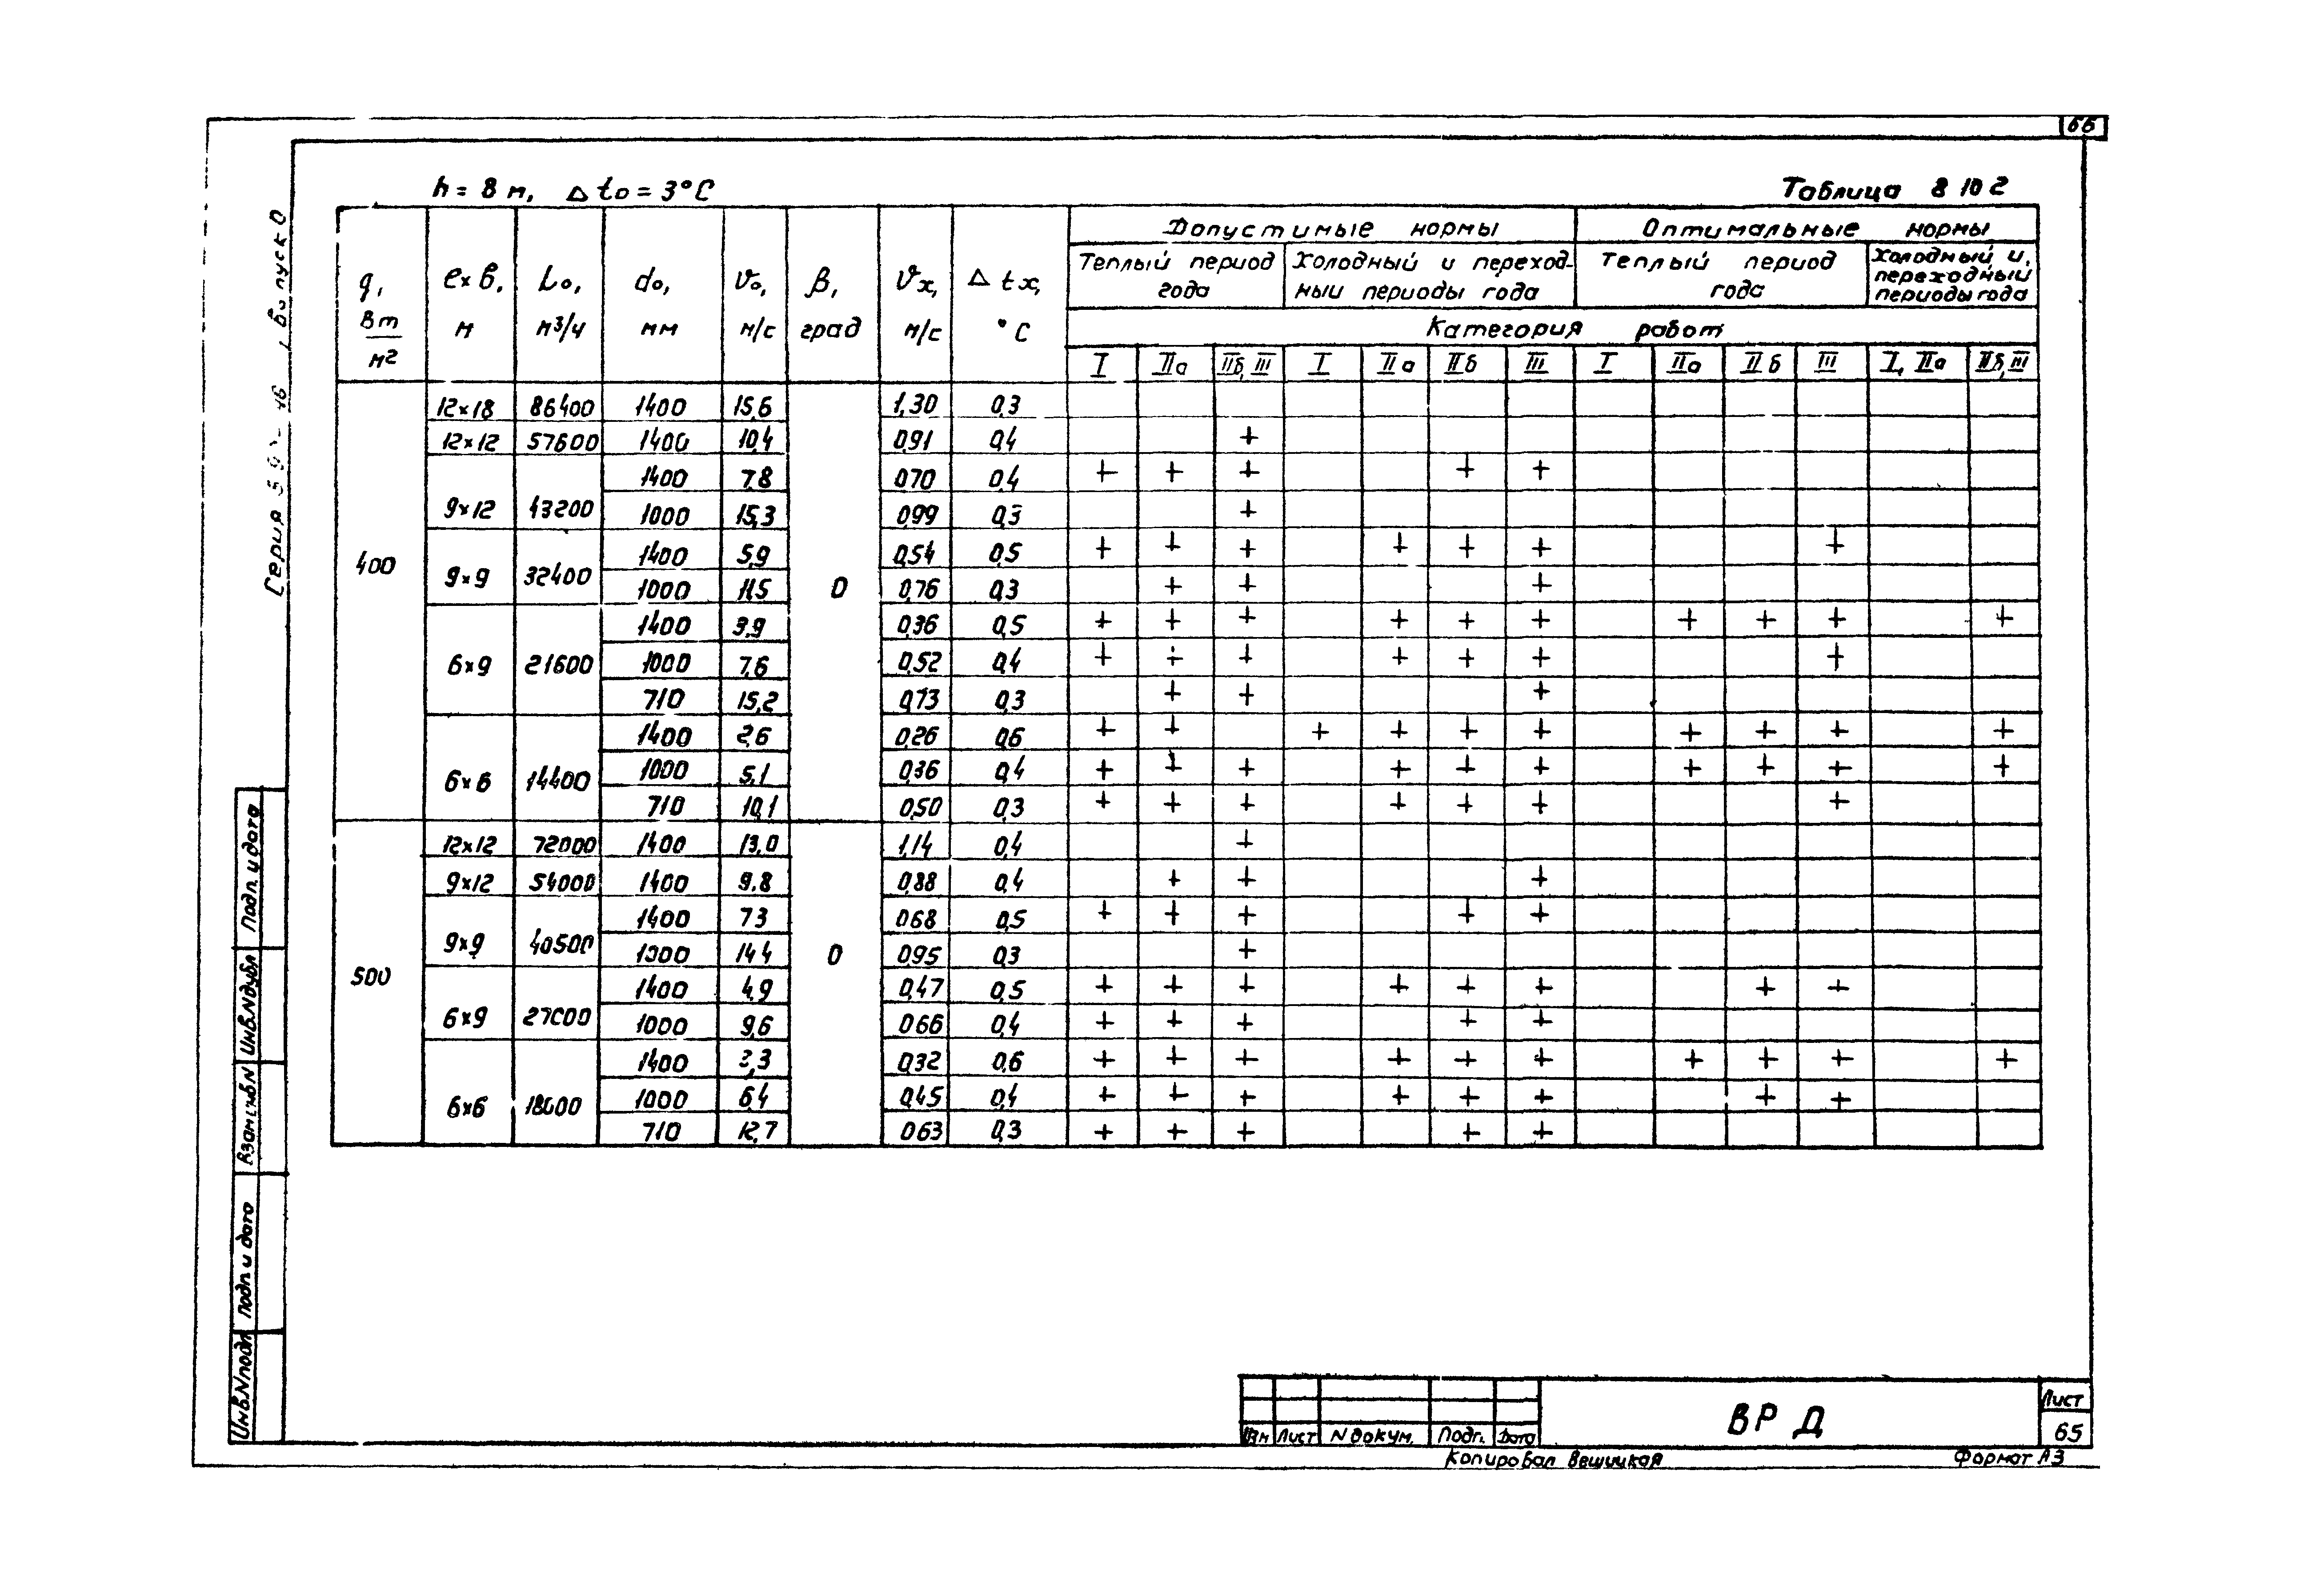 66
h = 8 м, Δ to = 3°C
Таблица 8 10 2
q, Вт/м2 | е×в, м | Lo, м3/ч | do, мм | vo, м/с | β, град | vx, м/с | Δ tx, °C | Допустимые нормы | Оптимальные нормы
Теплый период года | Холодный и переходный периоды года | Теплый период года | Холодный и переходный периоды года
Категория работ
I | IIа | IIб, III | I | IIа | IIб | III | I | IIа | IIб | III | I, IIа | IIб, III
400 | 12×18 | 86400 | 1400 | 15,6 | 0 | 1,30 | 0,3
12×12 | 57600 | 1400 | 10,4 | 0,91 | 0,4 | +
9×12 | 43200 | 1400 | 7,8 | 0,70 | 0,4 | + | + | + | + | +
1000 | 15,3 | 0,99 | 0,3 | +
9×9 | 32400 | 1400 | 5,9 | 0,54 | 0,5 | + | + | + | + | + | + | +
1000 | 11,5 | 0,76 | 0,3 | + | + | +
6×9 | 21600 | 1400 | 3,9 | 0,36 | 0,5 | + | + | + | + | + | + | + | + | + | +
1000 | 7,6 | 0,52 | 0,4 | + | + | + | + | + | + | +
710 | 15,2 | 0,73 | 0,3 | + | + | +
6×6 | 14400 | 1400 | 2,6 | 0,26 | 0,6 | + | + | + | + | + | + | + | + | + | +
1000 | 5,1 | 0,36 | 0,4 | + | + | + | + | + | + | + | + | + | +
710 | 10,1 | 0,50 | 0,3 | + | + | + | + | + | + | +
500 | 12×12 | 72000 | 1400 | 13,0 | 0 | 1,14 | 0,4 | +
9×12 | 54000 | 1400 | 9,8 | 0,88 | 0,4 | + | + | +
9×9 | 40500 | 1400 | 7,3 | 0,68 | 0,5 | + | + | + | + | +
1000 | 14,4 | 0,95 | 0,3 | +
6×9 | 27000 | 1400 | 4,9 | 0,47 | 0,5 | + | + | + | + | + | + | + | +
1000 | 9,6 | 0,66 | 0,4 | + | + | + | + | +
6×6 | 18000 | 1400 | 3,3 | 0,32 | 0,6 | + | + | + | + | + | + | + | + | + | +
1000 | 6,4 | 0,45 | 0,4 | + | + | + | + | + | + | + | +
710 | 12,7 | 0,63 | 0,3 | + | + | + | + | +
Серия 5.9 Выпуск 0
Подп. и дата
Инв.N дубл
Взам инв N
Подп и дата
Инв.N подл
Изм | Лист | N докум. | Подп. | Дата
ВР Д
Лист
65
Копировал Вешицкая
Формат А3